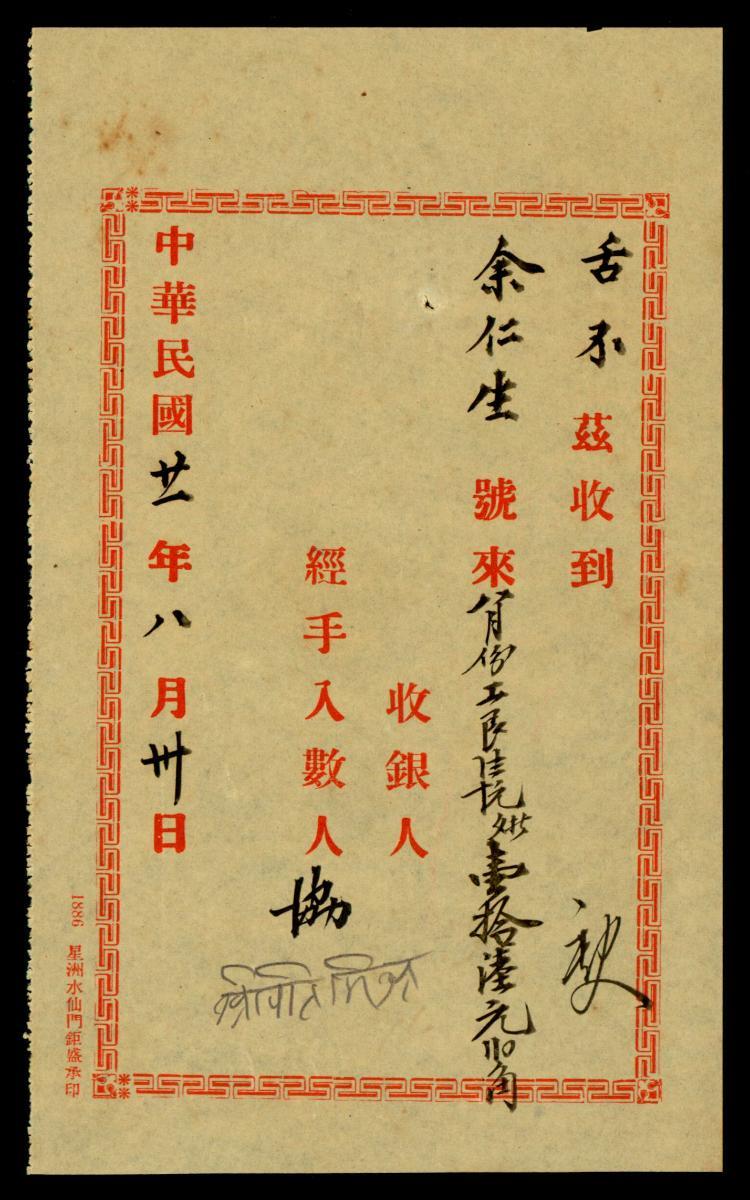 舌不 茲收到
余仁生 號來 八月份工艮 壹拾陸元 角
收銀人
經手入數人 協
中華民國廿一年八月卅日
1886 星洲水仙門鉅盛承印